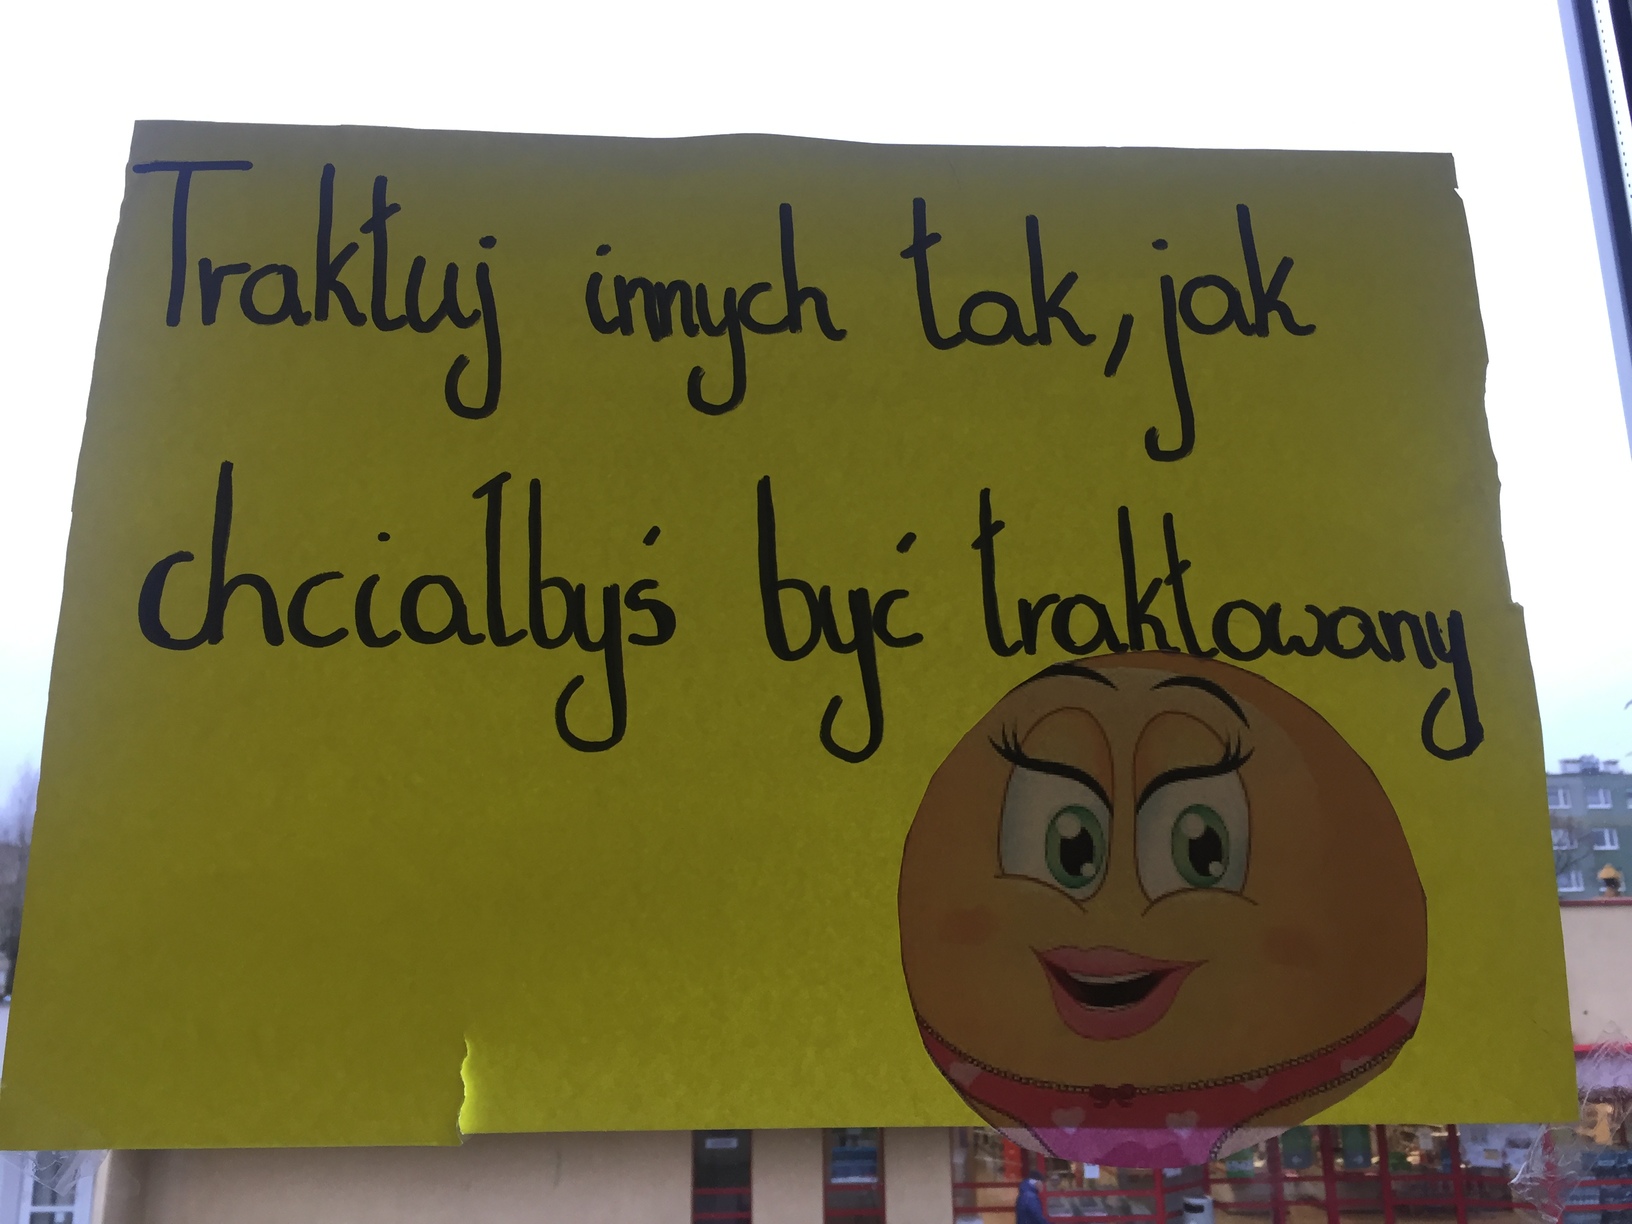 Traktuj innych tak, jak
chciałbyś być traktowany